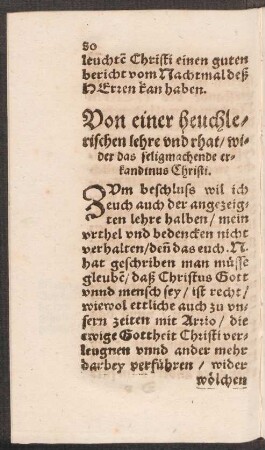 80
leuchtẽ Christi einen guten
bericht vom Nachtmal deß
HErren kan haben.
Von einer heuchle-
rischen lehre vnd rhat/ wi-
der das seligmachende er-
kandtnus Christi.
ZVm beschluss wil ich
euch auch der angezeig-
ten lehre halben/ mein
vrthel vnd bedencken nicht
verhalten/ deñ das euch. N.
hat geschriben man müsse
gleubẽ/ daß Christus Gott
vnnd mensch sey/ ist recht/
wiewol ettliche auch zu vn-
sern zeiten mit Arrio/ die
ewige Gottheit Christi ver-
leugnen vnnd ander mehr
darbey verführen/ wider
wölchen